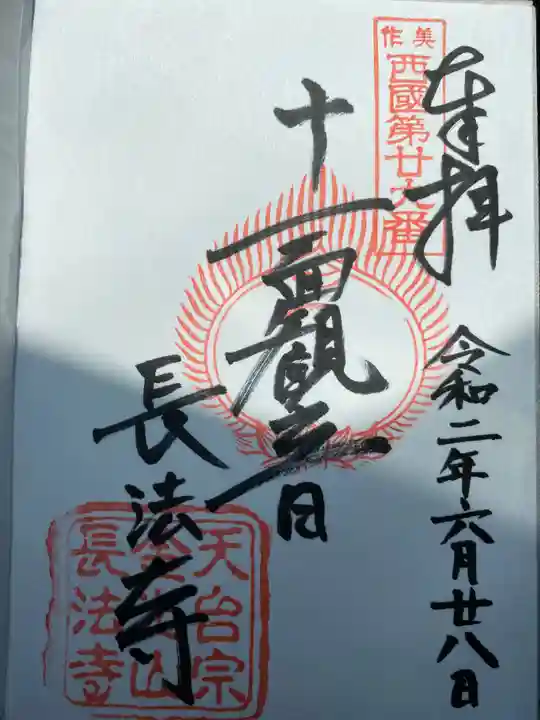 奉拝
美作
西國第廿九番
令和二年六月廿八日
十一面観音
長法寺
天台宗
金光山
長法寺